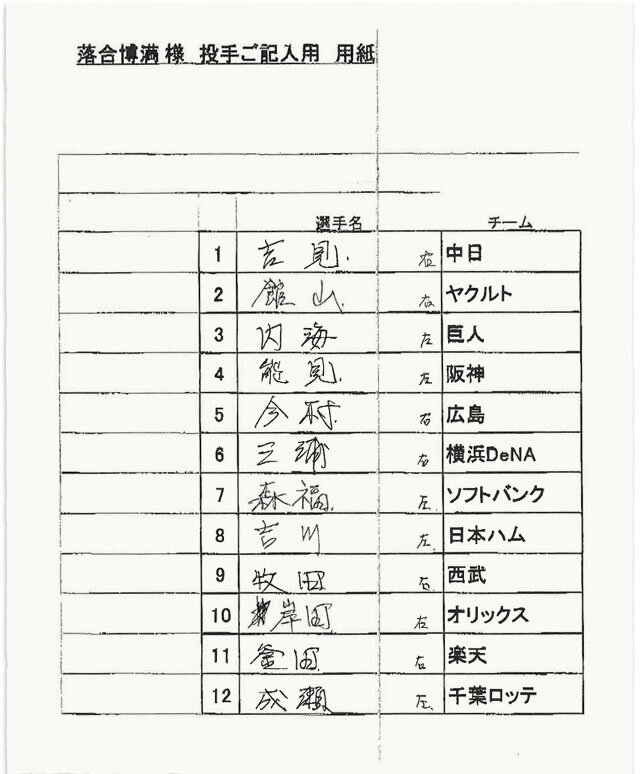 落合博満 様 投手ご記入用 用紙
選手名 チーム
1 吉見. 右 中日
2 館山. 右 ヤクルト
3 内海 左 巨人
4 能見. 左 阪神
5 今村. 右 広島
6 三浦 右 横浜DeNA
7 森福. 左 ソフトバンク
8 吉川 左. 日本ハム
9 牧田 右 西武
10 岸田 右 オリックス
11 釜田. 右 楽天
12 成瀬 左. 千葉ロッテ